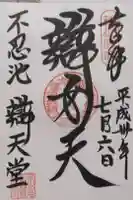 奉拝
平成卅年
七月六日
辯才天
不忍池
辯天堂